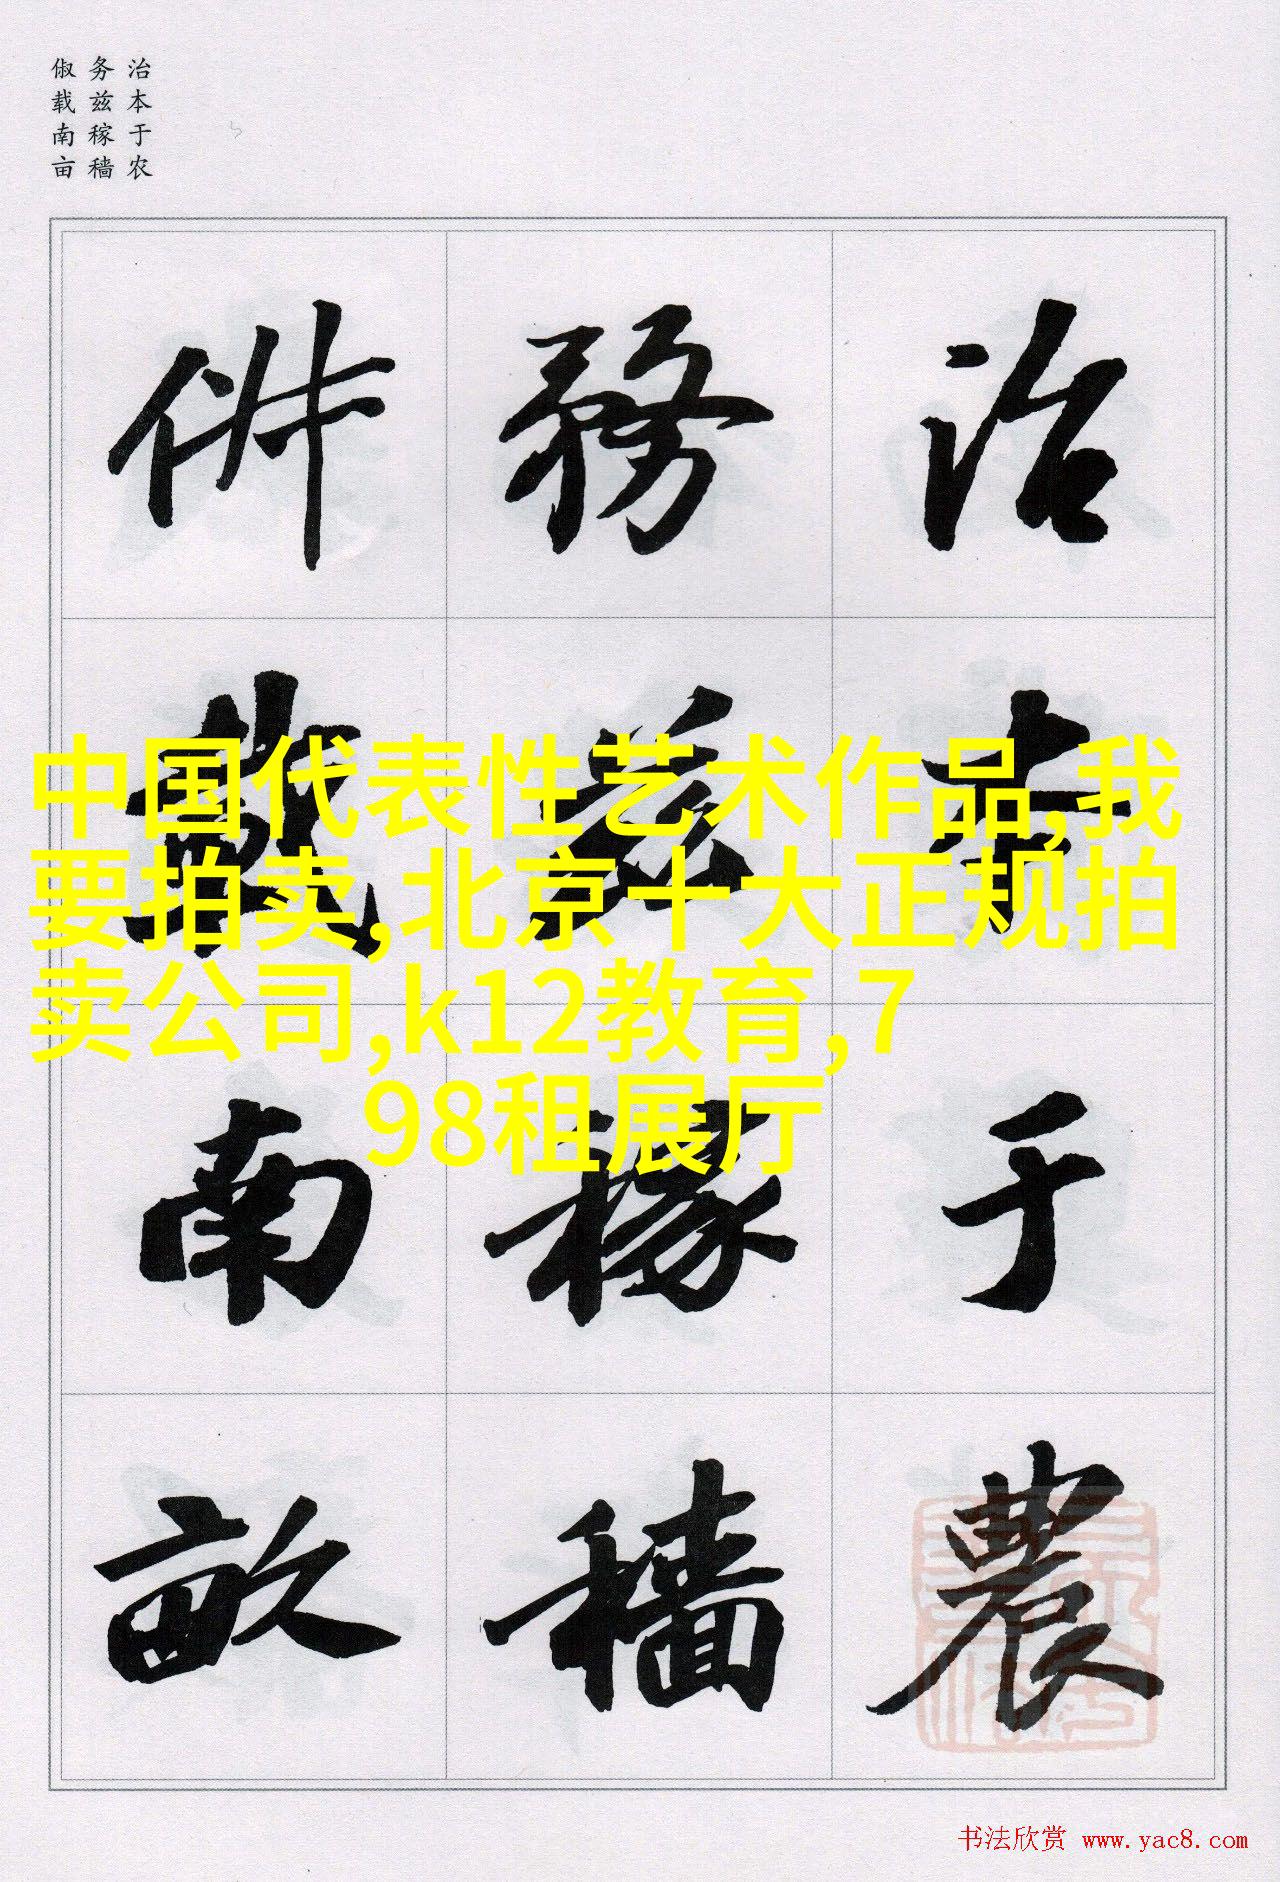 治本于农
务兹稼穑
俶载南亩
治本于農
務茲稼穡
俶載南畝
中国代表性艺术作品,我
要拍卖,北京十大正规拍
卖公司,k12教育,7
98租展厅
书法欣赏 www.yac8.com